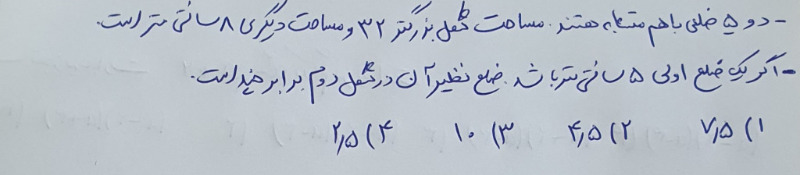 - دو ۵ ضلعی با هم متشابه هستند. مساحت شکل بزرگتر ۳۲ و مساحت دیگری ۸ سانتی متر است.
- اگر یک ضلع اولی ۵ سانتی متر باشد. ضلع نظیر آن در شکل دوم برابر چند است.
۱) ۷٫۵ ۲) ۴٫۵ ۳) ۱۰ ۴) ۲٫۵